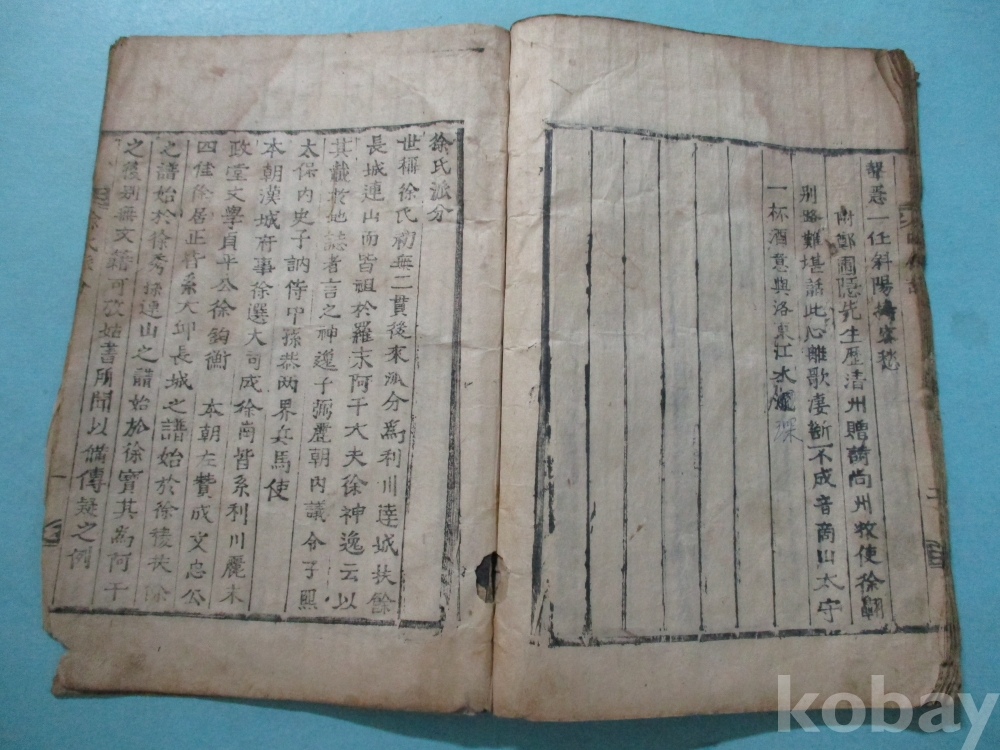 一任斜陽客愁
鄭圃隱先生歷淸州贈詩尙州牧使徐
別路難堪話此心離歌凄斷不成音商山太守
一杯酒意與洛東江水深
徐氏派分
世稱徐氏初無二貫後來派分爲利川達城扶餘
長城連山而皆祖於羅末阿干大夫徐神逸云以
其載於地誌者言之神逸子弼麗朝內議令子熙
太保內史子訥侍中孫恭兩界兵馬使
本朝漢城府事徐選大司成徐崗皆系利川麗末
政堂文學貞平公徐鈞衡 本朝左贊成文忠公
四佳徐居正皆系大丘長城之譜始於徐稜扶餘
之譜始於徐秀孫連山之譜始於徐寶其爲阿干
之後別無文籍可攷姑書所聞以備傳疑之例
kobay